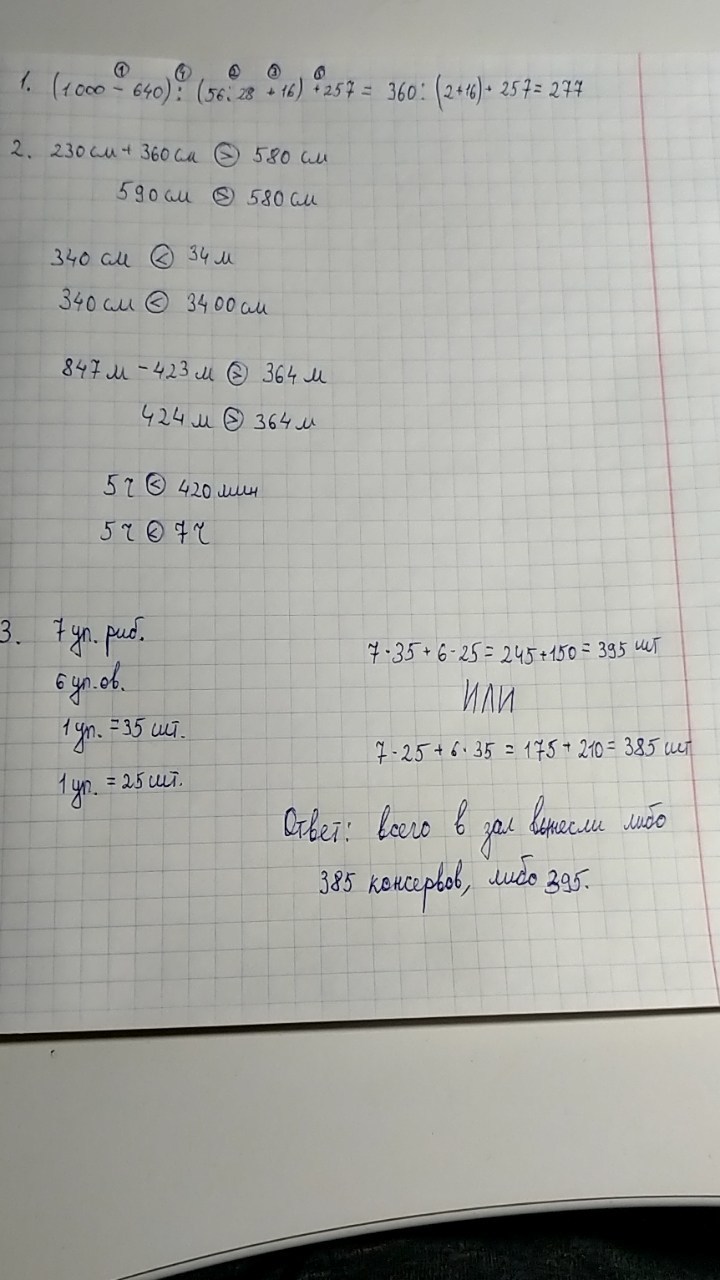 ① ④ ② ③ ⑤
1. (1000 - 640) : (56 : 28 + 16) + 257 = 360 : (2+16) + 257 = 277
2. 230 см + 360 см > 580 см
590 см > 580 см
340 см < 34 м
340 см < 3400 см
847 м - 423 м > 364 м
424 м > 364 м
5 ч < 420 мин
5 ч < 7 ч
3. 7 уп. риб.
6 уп. ов.
1 уп. = 35 шт.
1 уп. = 25 шт.
7 · 35 + 6 · 25 = 245 + 150 = 395 шт
ИЛИ
7 · 25 + 6 · 35 = 175 + 210 = 385 шт
Ответ: всего в зал вынесли либо
385 консервов, либо 395.